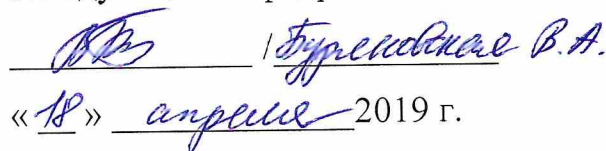 /Буряковская В.А.
«18» апреля 2019 г.